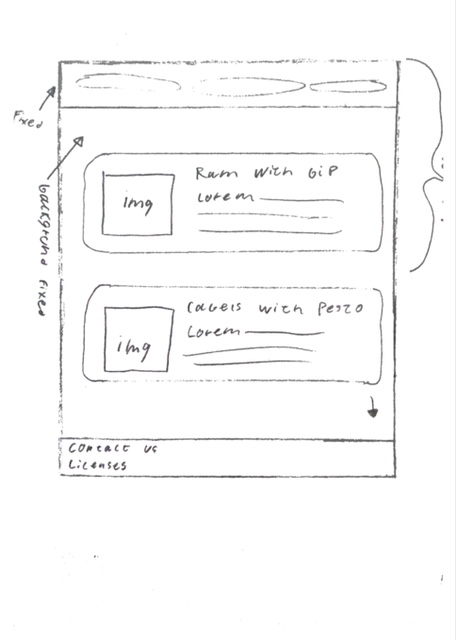 Fixed
background fixed
img
Ram with GIP
Lorem
img
with Pesto
Lorem
Contact us
Licenses